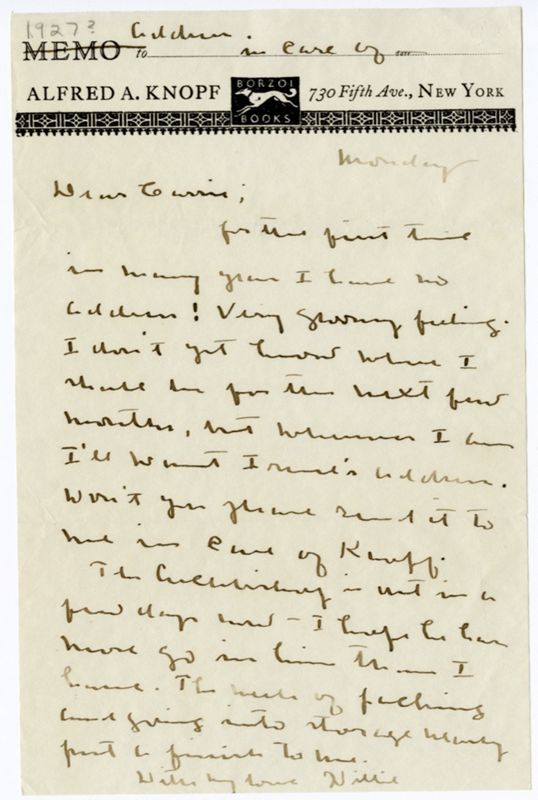 1927?
Address.
MEMO to in care of date
ALFRED A. KNOPF BORZOI BOOKS 730 Fifth Ave., NEW YORK
Monday
Dear Carrie;
for the first time
in many years I have no
address! Very gloomy feeling.
I don't yet know where I
shall be for the next few
months, but wherever I am
I'll want Irene's address.
Won't you please send it to
me in care of Knopf.
The Archbishop is out in a
few days now - I hope he has
more go in him than I
have. The week of packing
and going into storage nearly
put a finish to me.
With my love Willie